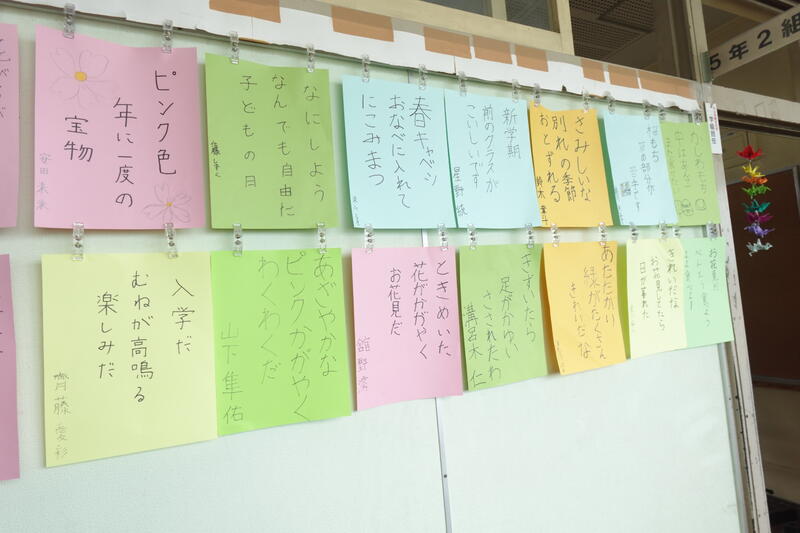 ピンク色
年に一度の
宝物
なにしよう
なんでも自由だ
子どもの日
春キャベツ
おなべに入れて
にこみまつ
新学期
前のクラスが
こいしいです
星野
さみしいな
別れの季節
おとずれる
鈴木
桜もち
の部分が
苦手です
5年2組
入学だ
むねが高鳴る
楽しみだ
齊藤愛彩
あざやかな
ピンクかがやく
わくわくだ
山下隼佑
ときめいた
花がかがやく
お花見だ
きずいたら
足がかゆい
さされたわ
溝呂木仁
あたたかい
緑がたくさん
きれいだな
きれいだな
お花見してたら
日が暮れた
お花見だ